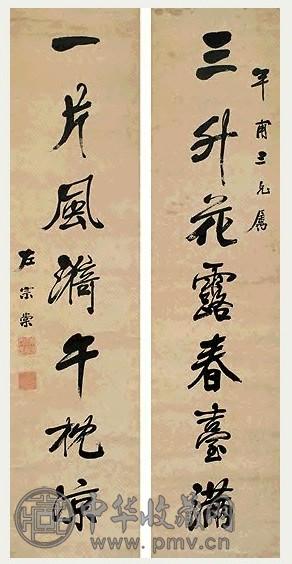 甫三兄屬
三升花露春臺滿
一片風漪午枕涼
左宗棠
中华收藏网
www.pmv.cn